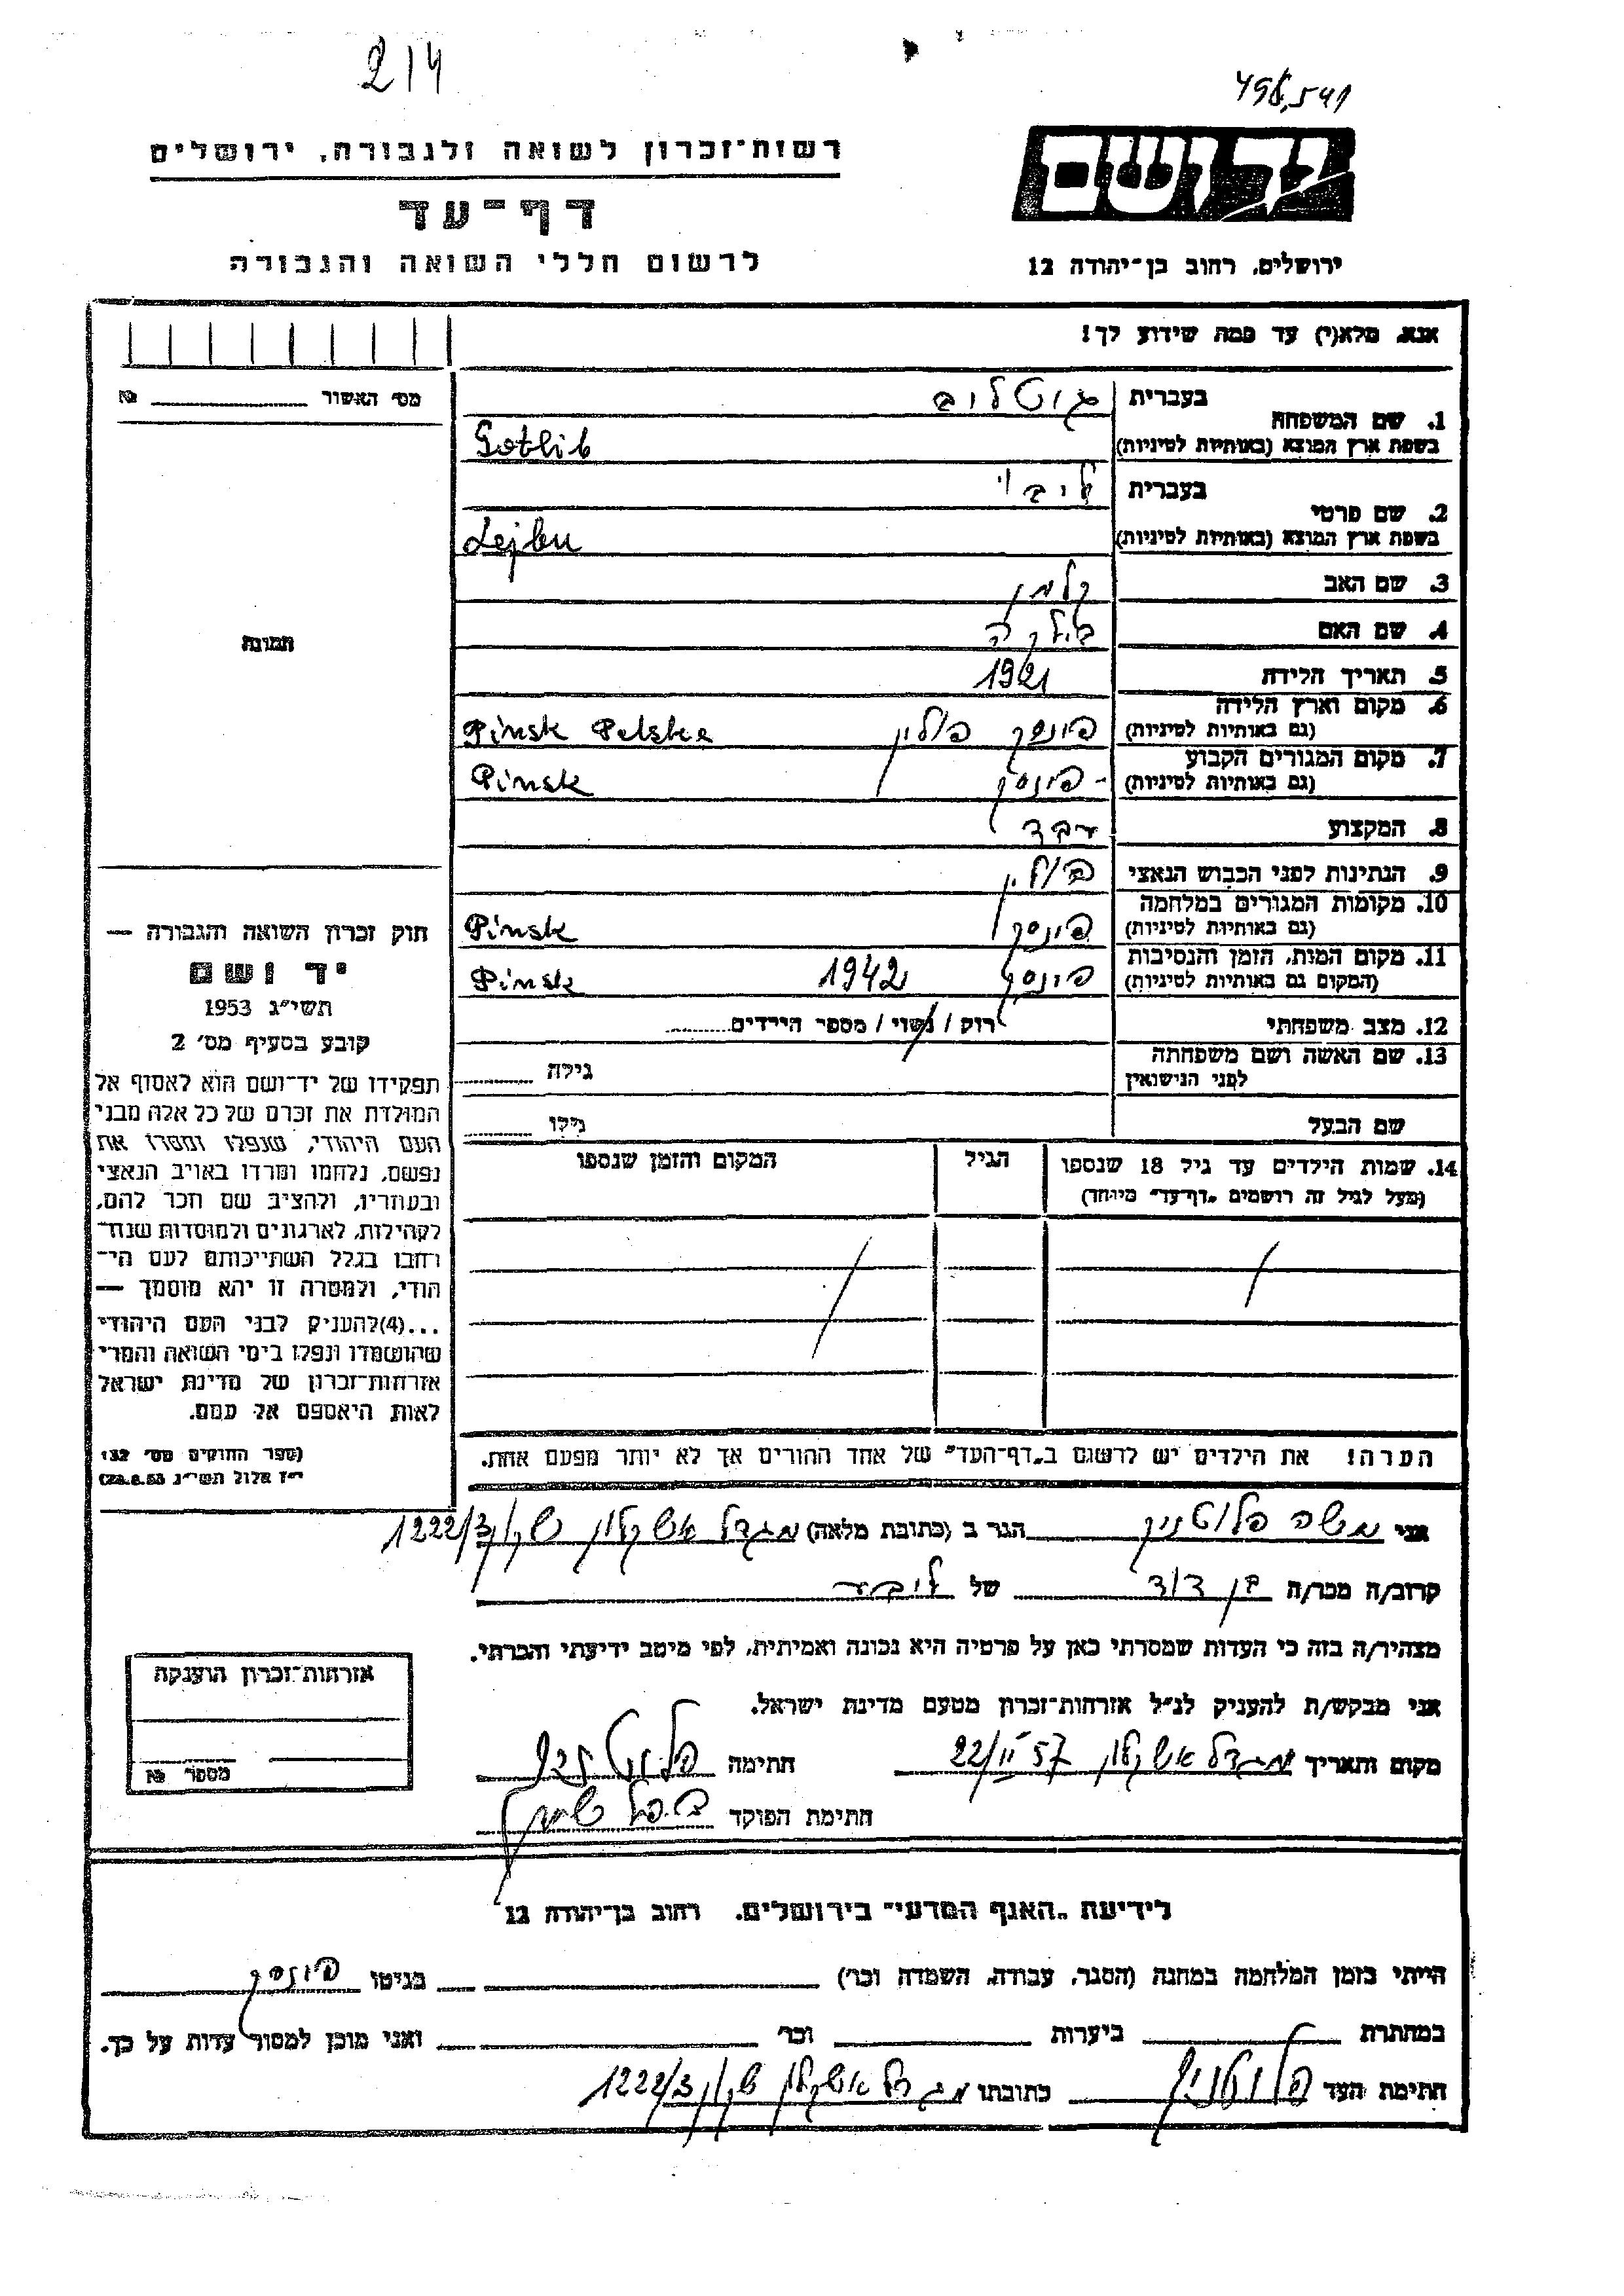 214
רשות־זכרון לשואה ולגבורה, ירושלים
דף־עד
לרשום חללי השואה והגבורה
יד ושם
ירושלים, רחוב בן־יהודה 12
אנא, מלא(י) עד כמה שידוע לך!
מס׳ האשור № 
1. שם המשפחה בעברית גוטליב
בשפת ארץ המוצא (באותיות לטיניות) Gotlib
2. שם פרטי בעברית
בשפת ארץ המוצא (באותיות לטיניות) Lejbu
3. שם האב קלמן
4. שם האם
5. תאריך הלידה 1921
6. מקום וארץ הלידה פינסק פולין Pinsk Polska
(גם באותיות לטיניות)
7. מקום המגורים הקבוע פינסק Pinsk
(גם באותיות לטיניות)
8. המקצוע
9. הנתינות לפני הכבוש הנאצי פולין
10. מקומות המגורים במלחמה פינסק Pinsk
(גם באותיות לטיניות)
11. מקום המות, הזמן והנסיבות פינסק 1942 Pinsk
(המקום גם באותיות לטיניות)
12. מצב משפחתי רוק / נשוי / מספר הילדים
13. שם האשה ושם משפחתה גילה
לפני הנישואין
שם הבעל גילו
14. שמות הילדים עד גיל 18 שנספו הגיל המקום והזמן שנספו
(מעל לגיל זה רושמים „דף־עד” מיוחד)
הערה! את הילדים יש לרשום ב„דף־העד” של אחד ההורים אך לא יותר מפעם אחת.
תמונה
חוק זכרון השואה והגבורה —
יד ושם
תשי״ג 1953
קובע בסעיף מס׳ 2
תפקידו של יד־ושם הוא לאסוף אל
המולדת את זכרם של כל אלה מבני
העם היהודי, שנפלו ומסרו את
נפשם, נלחמו ומרדו באויב הנאצי
ובעוזריו, ולהציב שם וזכר להם,
לקהילות, לארגונים ולמוסדות שנח־
רחבו בגלל השתייכותם לעם הי־
הודי, ולמטרה זו יהא מוסמך —
...(4)להעניק לבני העם היהודי
שהושמדו ונפלו בימי השואה והמרי
אזרחות־זכרון של מדינת ישראל
לאות היאספם אל עמם.
(ספר החוקים מס׳ 132
י״ז אלול תשי״ג 28.8.53)
אני משה פלוטניק הגר ב (כתובת מלאה) מגדל אשקלון שקון 1222/3
קרוב/ה מכר/ה בן דוד של
מצהיר/ה בזה כי העדות שמסרתי כאן על פרטיה היא נכונה ואמיתית, לפי מיטב ידיעתי והכרתי.
אני מבקש/ת להעניק לנ״ל אזרחות־זכרון מטעם מדינת ישראל.
מקום ותאריך מגדל אשקלון 22/II 57 חתימה פלוטניק
חתימת הפוקד
אזרחות־זכרון הוענקה
מספר №
לידיעת „האגף המדעי” בירושלים, רחוב בן־יהודה 12
הייתי בזמן המלחמה במחנה (הסגר, עבודה, השמדה וכר׳) בגיטו פינסק
במחתרת ביערות וכר׳ ואני מוכן למסור עדות על כך.
חתימת העד פלוטניק כתובתו מגדל אשקלון שקון 1222/3